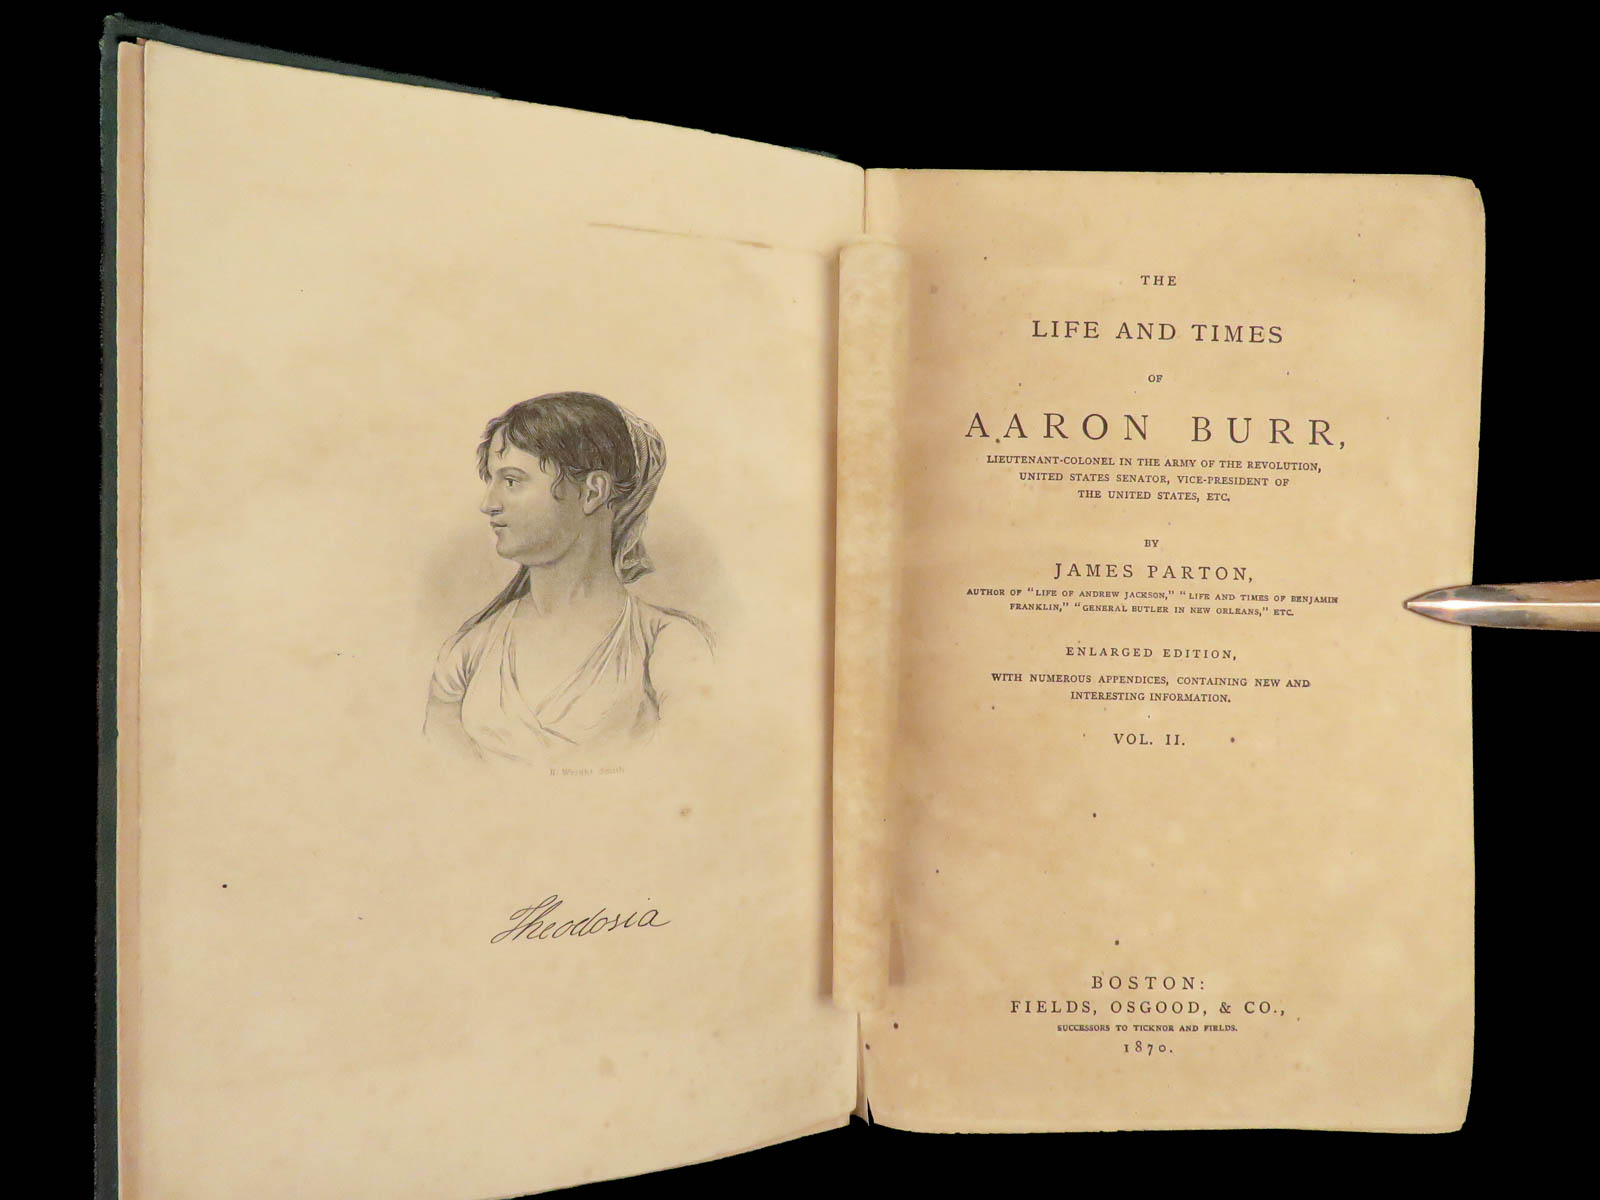 H. Wright Smith
Theodosia
THE
LIFE AND TIMES
OF
AARON BURR,
LIEUTENANT-COLONEL IN THE ARMY OF THE REVOLUTION,
UNITED STATES SENATOR, VICE-PRESIDENT OF
THE UNITED STATES, ETC.
BY
JAMES PARTON,
AUTHOR OF "LIFE OF ANDREW JACKSON," "LIFE AND TIMES OF BENJAMIN
FRANKLIN," "GENERAL BUTLER IN NEW ORLEANS," ETC.
ENLARGED EDITION,
WITH NUMEROUS APPENDICES, CONTAINING NEW AND
INTERESTING INFORMATION.
VOL. II.
BOSTON:
FIELDS, OSGOOD, & CO.,
SUCCESSORS TO TICKNOR AND FIELDS.
1870.